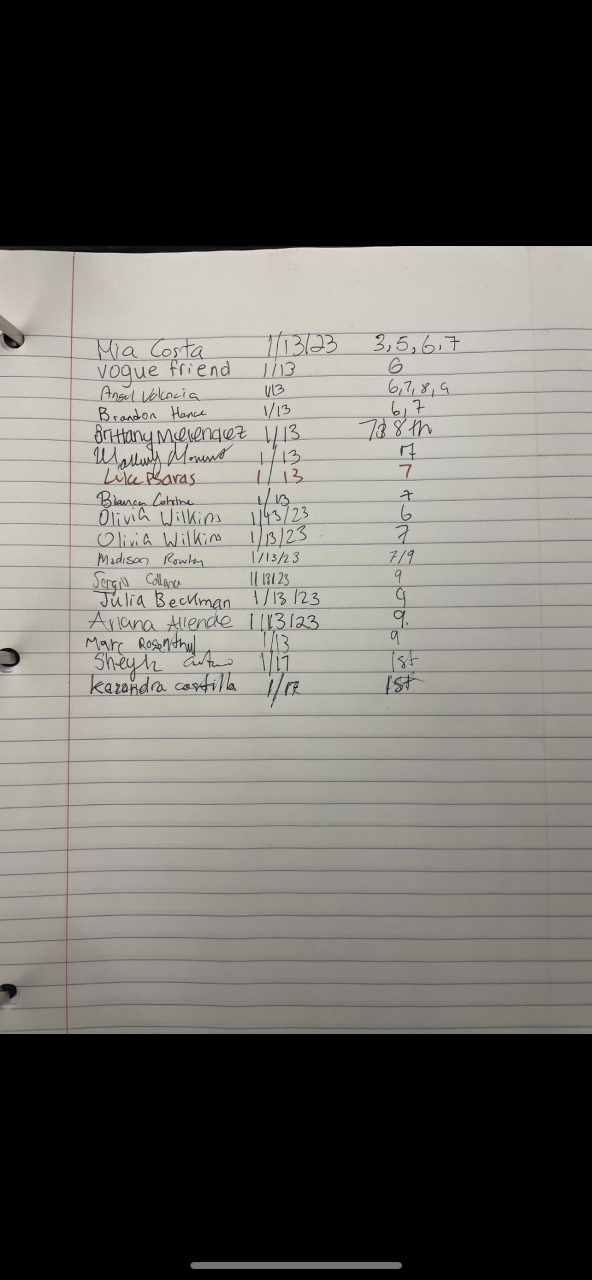 Mia Costa 1/13/23 3,5,6,7
vogue friend 1/13 6
Angel Valencia 1/13 6,7,8,9
Brandon Hance 1/13 6,7
Brittany 1/13 7&8th
1/13 7
Luke Psaras 1/13 7
Bianca 1/13 7
Olivia Wilkins 1/13/23 6
Olivia Wilkins 1/13/23 7
Madison Rowley 1/13/23 7/9
Sergio 1/13/23 9
Julia Beckman 1/13/23 9
Ariana Allende 1/13/23 9.
Marc Rosenthal 1/13 9
Sheyla 1/17 1st
Kazandra costilla 1/17 1st